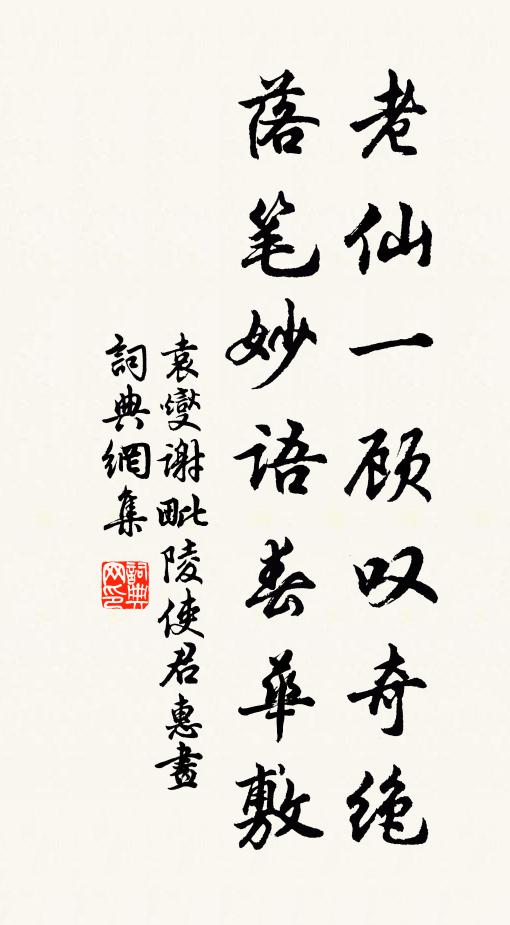 老仙一顾叹奇绝
落笔妙语春華敷
袁燮谢毗陵使君惠畫
詞典網集
詞典网印